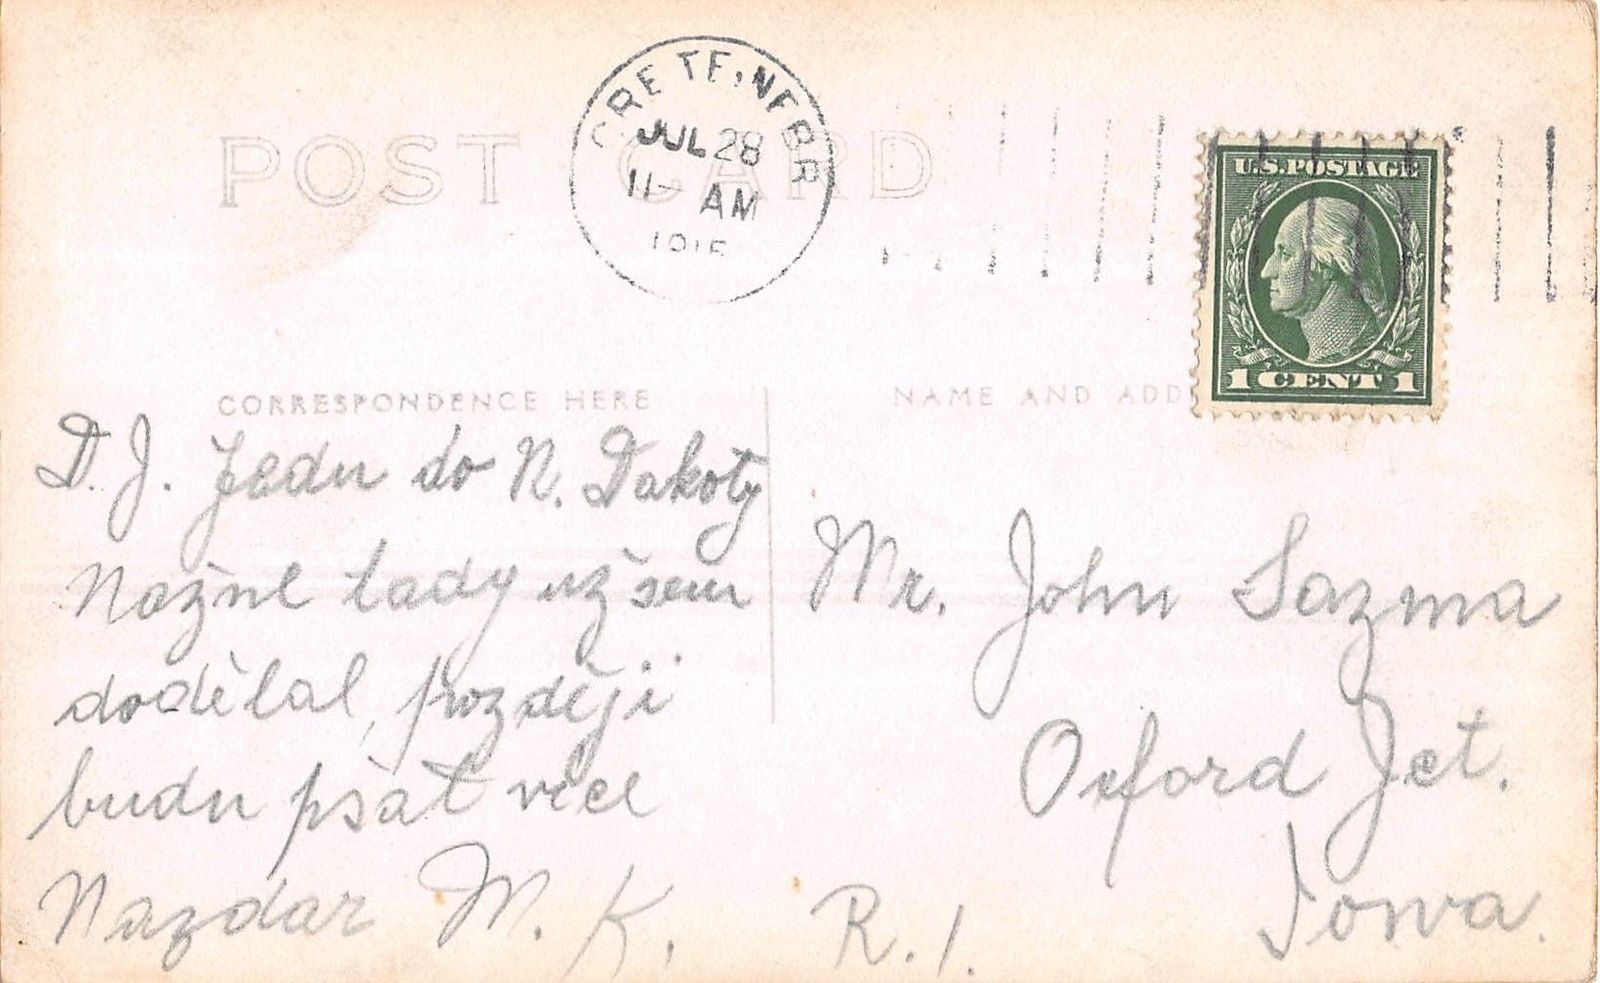 POST CARD
CRETE, NEBR
JUL 28
11 - AM
U.S. POSTAGE
1 CENT 1
CORRESPONDENCE HERE
NAME AND ADD
D. J. Jedu do N. Dakoty
Nožne tady už sem
dodělal, později
budu psát více
Nazdar M. K.
Mr. John Sazma
Oxford Jct.
Iowa.
R. 1.